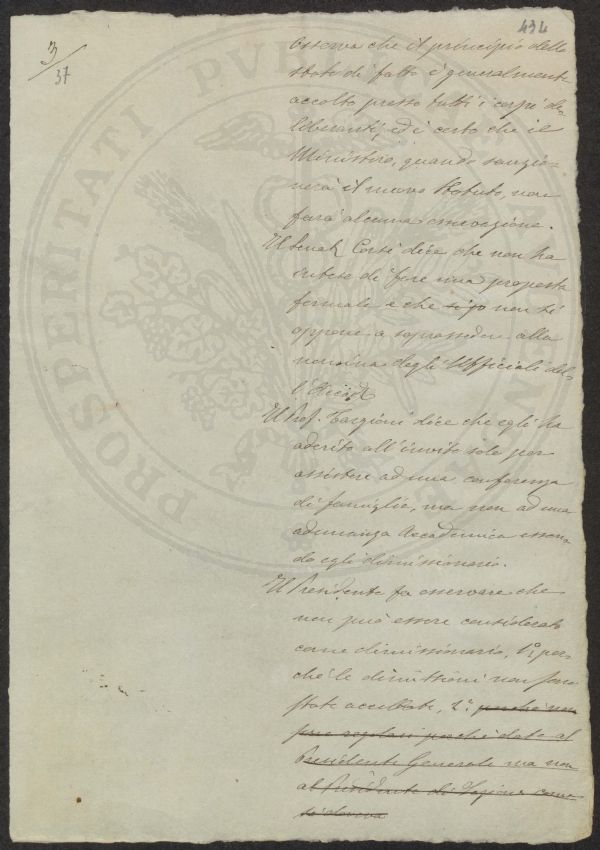 434
3/37
osserva che il principio dello
stato di fatto è generalmente
accolto presso tutti i corpi de-
liberanti, ed è certo che il
Ministero, quando sanzio-
nerà il nuovo Statuto, non
farà alcuna
Il Senat. Corsi dice che non ha
inteso di fare una proposta
formale e che si oppo non si
oppone a soprassedere alla
nomina degli Ufficiali del-
l'Accad.
Il Prof. Targioni dice che egli ha
aderito all'invito solo per
assistere ad una conferenza
di famiglia, ma non ad una
adunanza Accademica essen-
do egli dimissionario.
Il Presidente fa osservare che
non può essere considerato
come dimissionario, 1º. per-
chè le dimissioni non sono
state accettate, 2º. perchè non
sono regolari perchè date al
Presidente Generale ma non
al Presidente di Sezione come
si doveva
PROSPERITATI PUBLICAE AUGENDAE